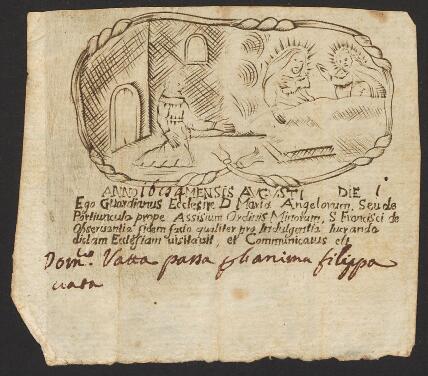 ANNO 1654 MENSIS AVGVSTI DIE 1
Ego Guardianus Ecclesiæ D Mariæ Angelorum, Seu de
Portiuncula prope Assisium Ordinis Minorum, S Francisci de
Obseruantia fidem facio qualiter pro Indulgentia lucranda
dictam Ecclesiam visitauit, et Communicatus est
Dom.co Vatta passa p lanima filippa
uata